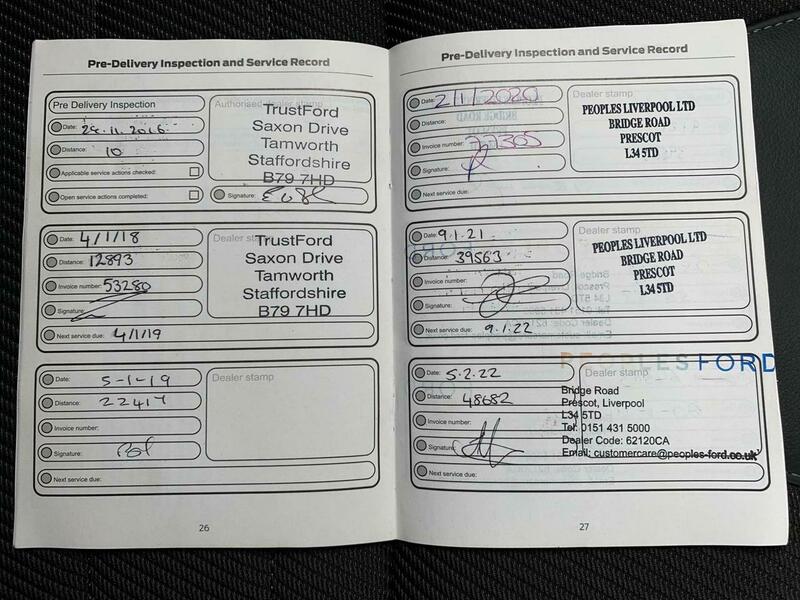 Pre-Delivery Inspection and Service Record
Pre Delivery Inspection
Date: 29.11.2016
Distance: 10
Applicable service actions checked:
Open service actions completed:
Authorised dealer stamp
TrustFord
Saxon Drive
Tamworth
Staffordshire
B79 7HD
Signature:
Date: 4/1/18
Distance: 12893
Invoice number: 53280
Signature:
Next service due: 4/1/19
Dealer stamp
TrustFord
Saxon Drive
Tamworth
Staffordshire
B79 7HD
Date: 5-1-19
Distance: 22417
Invoice number:
Signature:
Next service due:
Dealer stamp
26
Pre-Delivery Inspection and Service Record
Date: 2/1/2020
Distance:
Invoice number:
Signature:
Next service due:
Dealer stamp
PEOPLES LIVERPOOL LTD
BRIDGE ROAD
PRESCOT
L34 5TD
Date: 9.1.21
Distance: 39563
Invoice number:
Signature:
Next service due: 9.1.22
Dealer stamp
PEOPLES LIVERPOOL LTD
BRIDGE ROAD
PRESCOT
L34 5TD
Date: 5.2.22
Distance: 48682
Invoice number:
Signature:
Next service due:
PEOPLES FORD
Dealer stamp
Bridge Road
Prescot, Liverpool
L34 5TD
Tel: 0151 431 5000
Dealer Code: 62120CA
Email: customercare@peoples-ford.co.uk
27